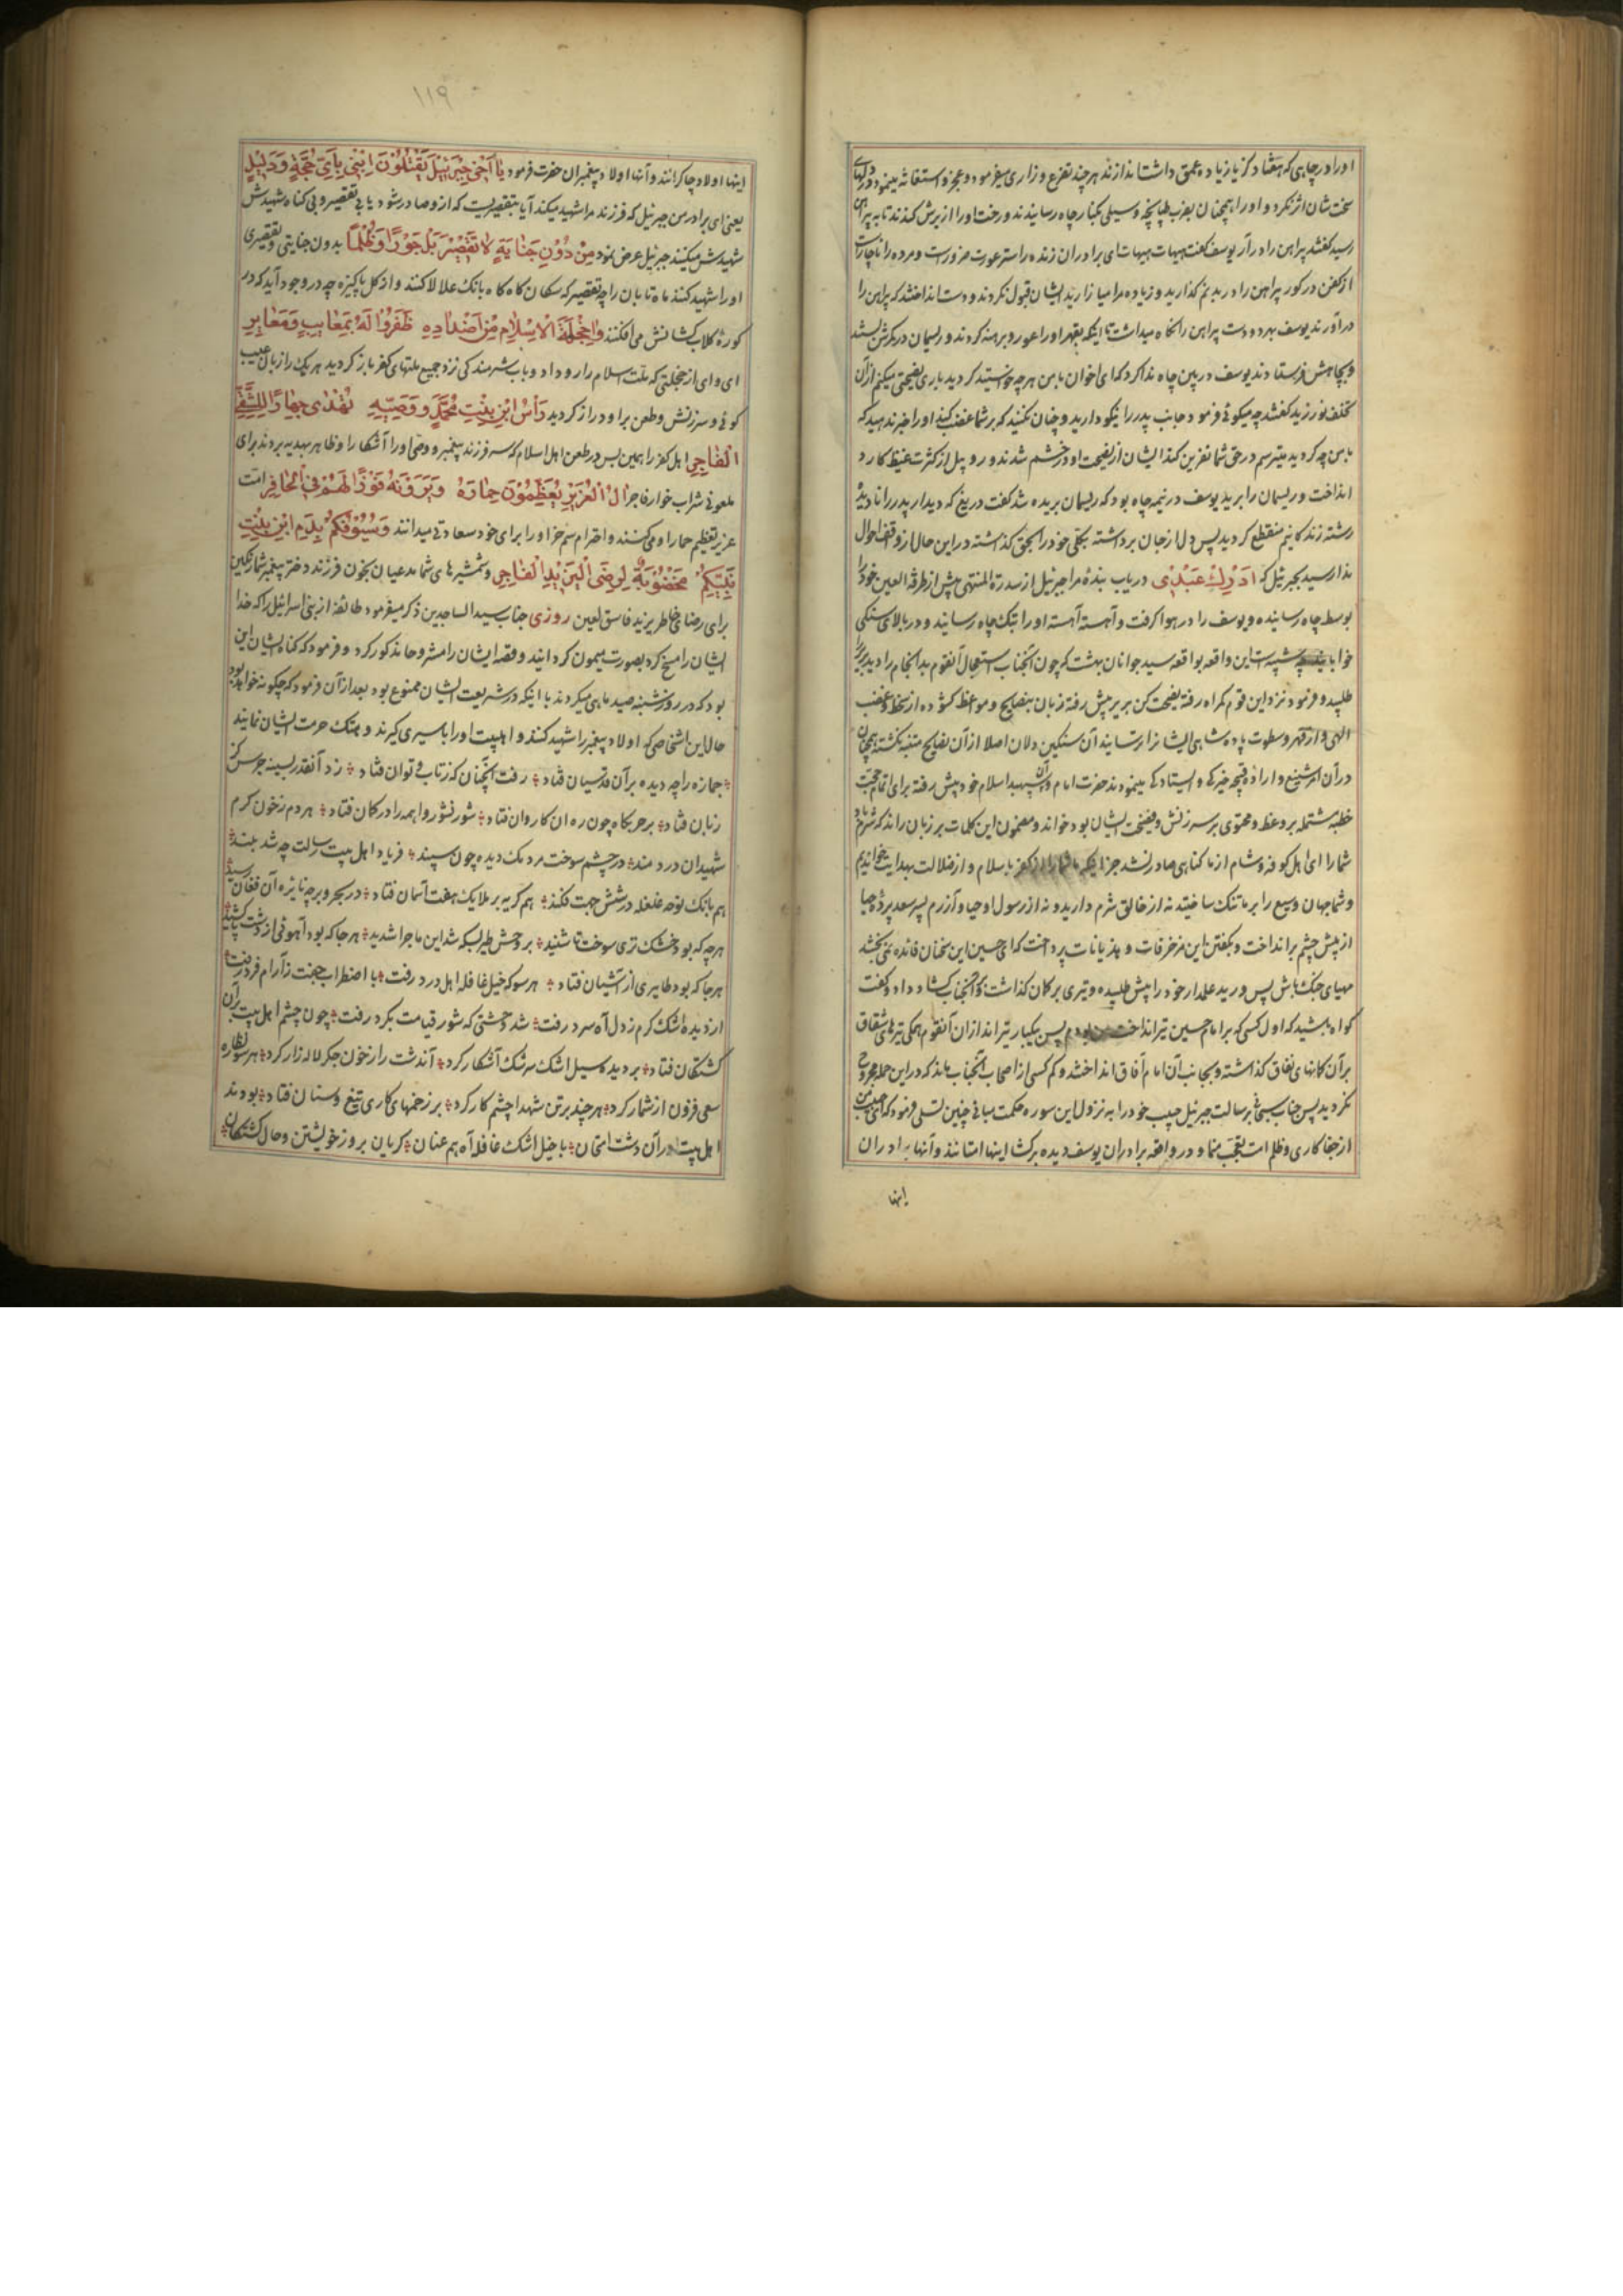 او را در چاهی که هفتاد گز یا زیاده عمق داشت اندازند هر چند تضرع و زاری میفرمود و عجز و استغاثه مینمود در دلهای
سخت شان اثر نکرد و او را همچنان بضرب طپانچه و سیلی بکنار چاه رسانیدند و رخت او را از برش کندند تا به پیراهن
رسید گفتند پیراهن را در آر یوسف گفت هیهات هیهات ای برادران زنده را ستر عورت ضرورست و مرده را ناچارست
از کفن در گور پیراهن را در بدنم گذارید و زیاده مرا میازارید ایشان قبول نکردند و دست انداختند که پیراهن را
در آورند یوسف بهر دو دست پیراهن را نگاه میداشت تا اینکه بقهر او را عور و برهنه کردند و ریسمان در کمرش بستند
و بچاهش فرستادند یوسف در پین چاه ندا کرد که ای اخوان با من هر چه خواستید کردید باری نصیحتی میکنم از آن
تخلف نورزید گفتند چه میگوئی فرمود جانب پدر را نیکو دارید و چنان نکنید که بر شما غضب کند او را خبر ندهید که
با من چه کردید میترسم در حق شما نفرین کند ایشان از نصیحت او در خشم شدند و روبیل از کثرت غیظ کارد
انداخت و ریسمان را برید یوسف در نیمه چاه بود که ریسمان بریده شد گفت دریغ که دیدار پدر را نادیده
رشته زندگانیم منقطع گردید پس دل از جان برداشته بکلی خود را بحق گذاشته در این حال از وقف احوال
ندا رسید بجبرئیل که ادرك عبدی دریاب بندهٔ مرا جبرئیل از سدرة المنتهی پیش از طرفة العین خود را
بوسط چاه رسانیده و یوسف را در هوا گرفت و آهسته آهسته او را بتک چاه رسانید و در بالای سنگی
خوابانید چه شبیه است این واقعه بواقعه سید جوانان بهشت که چون آنجناب استعجال آنقوم بد انجام را دید بریر را
طلبید و فرمود نزد این قوم گمراه رفته نصیحت کن بریر پیش رفته زبان بنصایح و مواعظ گشوده از سخط و غضب
الهی و از قهر و سطوت پادشاهی ایشانرا ترسانید آن سنگین دلان اصلا از آن نصایح متنبه نگشته همچنان
در آن امر شنیع و ارادهٔ قبیحه خیرگی و ایستادگی مینمودند حضرت امام و آن سپهبد اسلام خود پیش رفته برای اتمام حجت
خطبه مشتمله بر وعظ و محتوی بر سرزنش و فضیحت ایشان بود خواند و مضمون این کلمات بر زبان راند که شرم باد
شما را ای اهل کوفه و شام از ما گناهی صادر نشد جز اینکه ما شما را از کفر باسلام و از ضلالت بهدایت خواندیم
و شما جهان وسیع را بر ما تنگ ساختید نه از خالق شرم دارید و نه از رسول او حیا و آزرم پسر سعد پردهٔ حیا
از پیش چشم بر انداخت و بگفتن این مزخرفات و هذیانات پرداخت که ای حسین این سخنان فائده نمی بخشد
مهیای جنگ باش پس درید علمدار خود را پیش طلبیده و تیری بر کمان گذاشت و بر آنجناب گشاد داد و گفت
گواه باشید که اول کسی که بر امام حسین تیر انداخت من بودم پس یکبار تیراندازان آنقوم همگی تیرهای شقاق
بر آن کمانهای نفاق گذاشته و بجانب آن امام آفاق انداختند و کم کسی از اصحاب آنجناب ماند که در این حمله مجروح
نگردید پس جناب سبحانی برسالت جبرئیل حبیب خود را به نزول این سوره حکمت مبانی چنین تسلی فرمود که ای حبیب من
از جفاکاری و ظلم امت تعجب منما و در واقعه برادران یوسف دیده بر گشا اینها امتانند و آنها برادران
اینها
۱۱۹
اینها اولاد چاکرانند و آنها اولاد پیغمبران حضرت فرمود یا اخی جبرئیل یقتلون ابنی بای حجة و دلیل
یعنی ای برادر من جبرئیل که فرزند مرا شهید میکند آیا بتقصیریست که از و صادر شود یا بی تقصیر و بی گناه شهیدش
شهیدش میکنند جبرئیل عرض نمود من دون جنایة لا تقصیر بل جورا و ظلما بدون جنایتی و تقصیری
او را شهید کنند ماه تابان را چه تقصیر که سگان گاه گاه بانگ علالا کنند و از گل پاکیزه چه در وجود آید که در
کورهٔ گلاب کشانش می افکنند واخجلة الاسلام من اضداده ظفروا له بمعایب و معایر
ای وای از خجلتی که ملت اسلام را رو داد و باب شرمندگی نزد جمیع ملتهای کفر باز گردید هر یک را زبان عیب
گوئی و سرزنش و طعن بر او دراز گردید راس ابن بنت محمد و وصیه تهدی جهارا للشقی
الفاجر اهل کفر را همین بس در طعن اهل اسلام که سر فرزند پیغمبر و وصی او را آشکارا و ظاهر بهدیه بردند برای
ملعونی شراب خوار فاجر ال العزیز یعظمون حماره و یرونه فوزا لهم فی الحافر امت
عزیز تعظیم حمار او میکنند و احترام سم خر او را برای خود سعادتی میدانند و سیوفکم بدم ابن بنت
نبیکم مخضوبة لرضی الیزید الفاجر و شمشیرهای شما مدعیان بخون فرزند دختر پیغمبر شما رنگین
برای رضای خاطر یزید فاسق لعین روزی جناب سید الساجدین ذکر میفرمود طائفهٔ از بنی اسرائیل را که خدا
ایشان را مسخ کرد بصورت میمون گردانید و قصه ایشان را مشروحا مذکور کرد و فرمود که گناه ایشان این
بود که در روز شنبه صید ماهی میکردند با اینکه در شریعت ایشان ممنوع بود بعد از آن فرمود که چگونه خواهد بود
حال این اشخاصی که اولاد پیغمبر را شهید کنند و اهلبیت او را باسیری گیرند و هتک حرمت ایشان نمایند
جمازه را چه دیده بر آن قدسیان فتاد رفت آنچنان که ز تاب و توان فتاد زد آنقدر بسینه جرس کز
زبان فتاد بر حربگاه چون ره آن کاروان فتاد شور نشور واهمه را در گمان فتاد هر دم ز خون گرم
شهیدان دردمند در چشم سوخت مردمک دیده چون سپند فریاد اهل بیت رسالت چه شد بلند
هم بانگ نوحه غلغله در شش جهت فکند هم گریه بر ملایک هفت آسمان فتاد در بحر و بر چه نایره آن فغان رسید
هر چه که بود خشک تری سوخت تا شنید بر وحش طیر بسکه شد این ماجرا شدید هر جا که بود آهوئی از دشت پا کشید
هر جا که بود طایری از آشیان فتاد هر سو که خیل غافله اهل درد رفت با اضطراب جفت ز آرام فرد رفت
از دیده اشک گرم ز دل آه سرد رفت شد وحشتی که شور قیامت بگرد رفت چون چشم اهل بیت بر آن
کشتگان فتاد بر دیده سیل اشک سرشک آشکار کرد آندشت را ز خون جگر لاله زار کرد هر سو نظاره
سعی فزون از شمار کرد هر چند بر تن شهدا چشم کار کرد بر زخمهای کاری تیغ و سنان فتاد بودند
اهل بیت در آن دشت امتحان با خیل اشک غافله آه هم عنان گریان بروز خویشتن و حال کشتگان